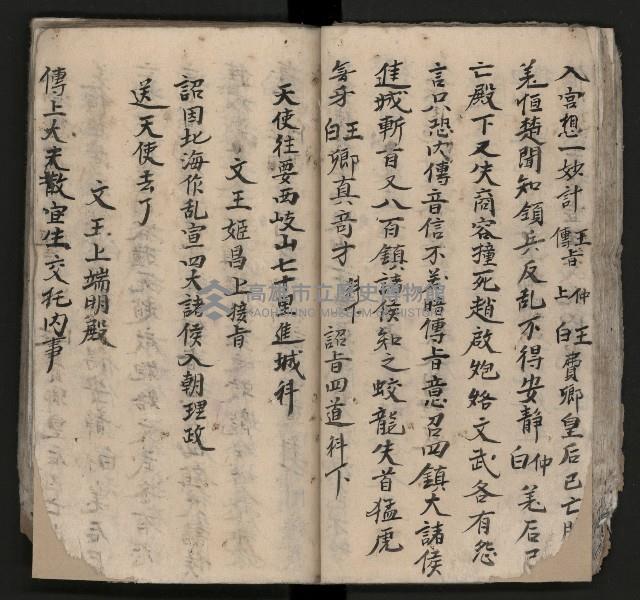 入宮想一妙計 王傳旨 仲上 王白 費卿皇后已亡
羌恒楚聞知領兵反乱不得安静 仲白 羌后
亡殿下又失商容撞死趙啟炮烙文武各有怨
言只恐内傳音信不若暗傳旨意召四鎮大諸侯
進城斬首又八百鎮諸侯知之蛟龍失首猛虎
無牙 王白 卿真奇才 科下 詔旨四道科下
天使往要西岐山七十里進城科
文王姬昌上接旨
詔因北海作乱宣四大諸侯入朝理政
送天使去了
文王上端明殿
傳上大夫散宜生交托内事
高雄市立歷史博物館
KAOHSIUNG MUSEUM OF HISTORY